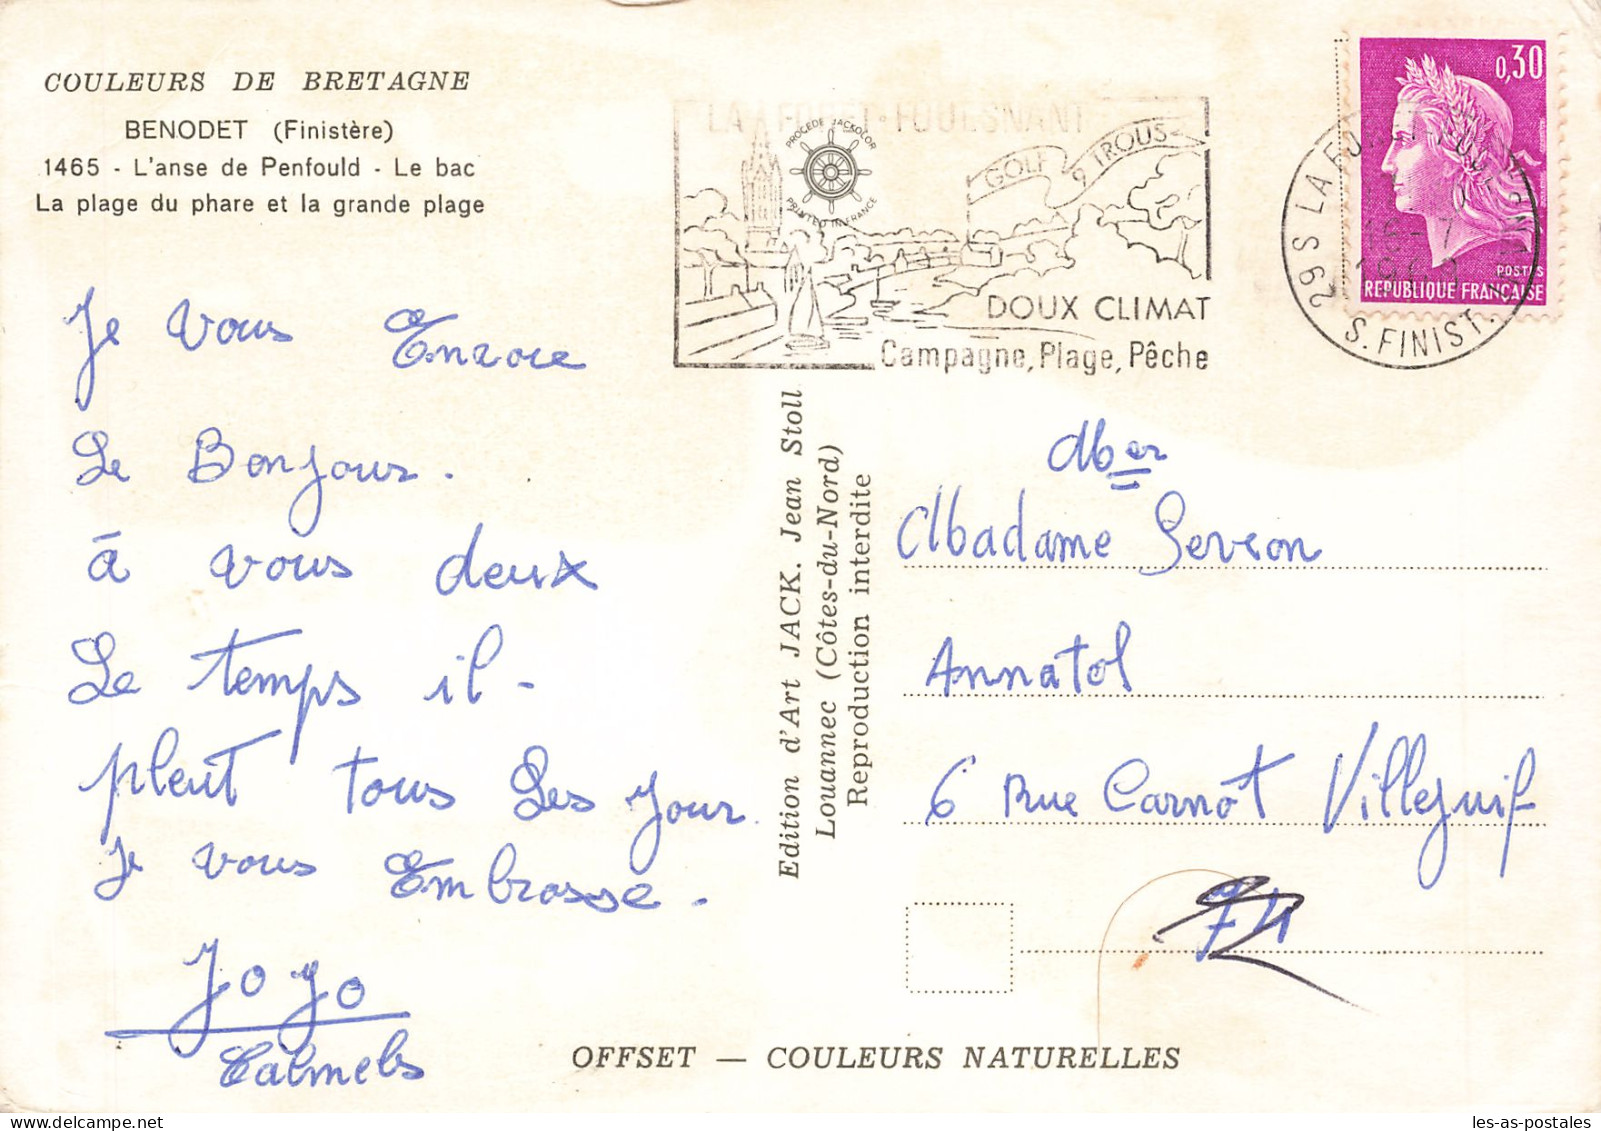 COULEURS DE BRETAGNE
BENODET (Finistère)
1465 - L'anse de Penfould - Le bac
La plage du phare et la grande plage
LA FORET-FOUESNANT
GOLF 9 TROUS
PROCEDE JACKOLOR
PRINTED IN FRANCE
DOUX CLIMAT
Campagne, Plage, Pêche
0,30
POSTES
REPUBLIQUE FRANÇAISE
29 S LA FORET-FOUESNANT
16-7
S. FINIST.
Je vous Encore
Le Bonjour.
à vous deux
Le temps il -
pleut tous Les Jour
Je vous Embrasse.
Jojo
Calmels
Edition d'Art JACK. Jean Stoll
Louannec (Côtes-du-Nord)
Reproduction interdite
Mer
Madame Sevron
Annatol
6 Rue Carnot Villejuif
OFFSET — COULEURS NATURELLES
les-as-postales